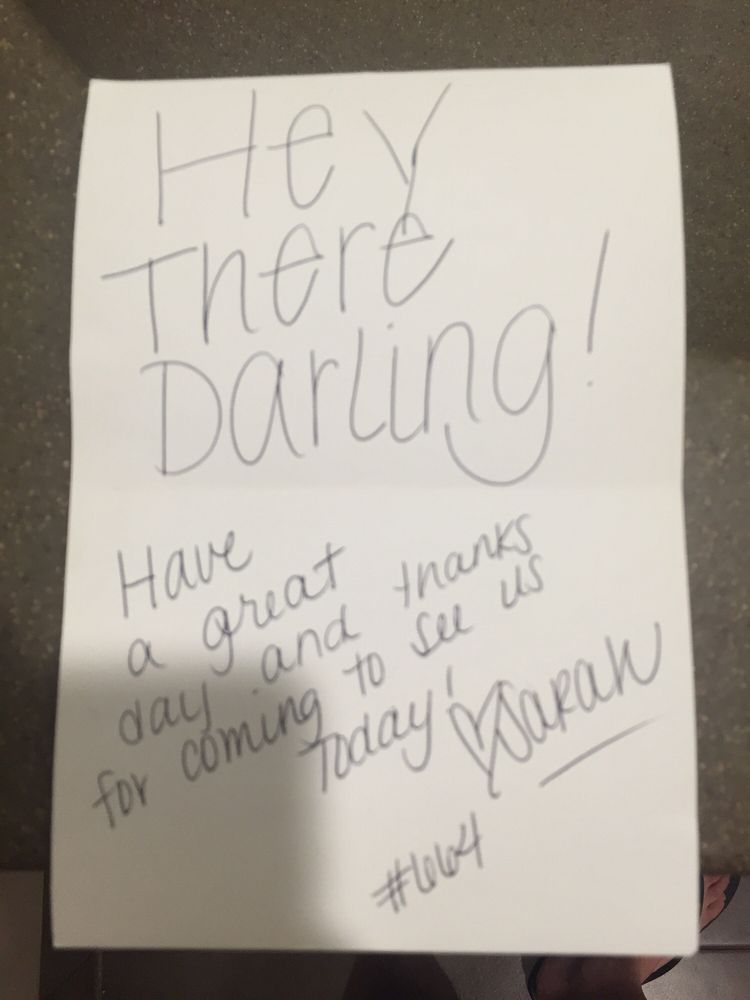 Hey
There
Darling!
Have
a great
day and thanks
for coming to see us
Today! ♡Sarah
#664